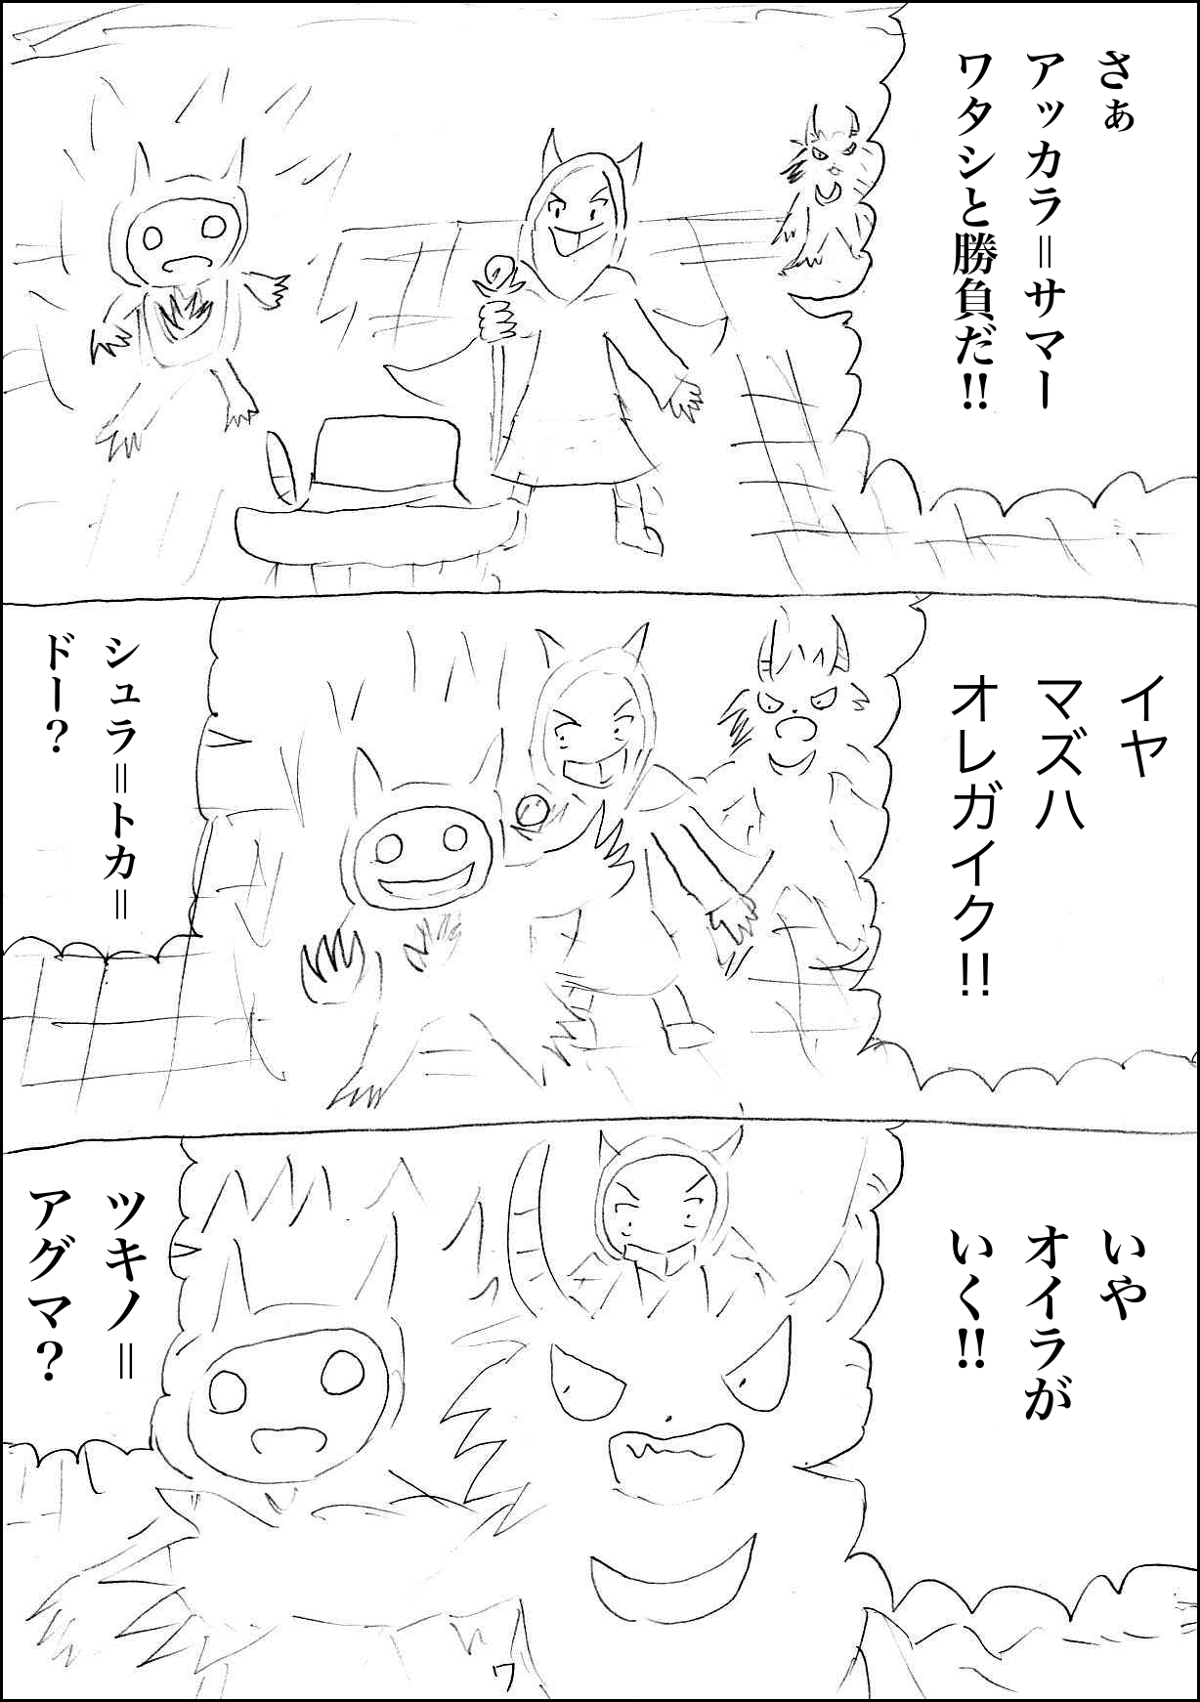 さぁ
アッカラ＝サマー
ワタシと勝負だ!!
イヤ
マズハ
オレガイク!!
シュラ＝トカ＝
ドー？
いや
オイラが
いく!!
ツキノ＝
アグマ？
ワ